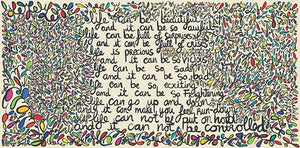 life can be so beautiful
and it can be so awful
life can be full of surprises
and it can be full of crises
life is precious
and it can be so
life can be so sad
and it can be so bad
life can be so exciting
and it can be so frightening
life can go up and down
and it can make you feel run-down
life can not be put on hold
and it can not be controlled